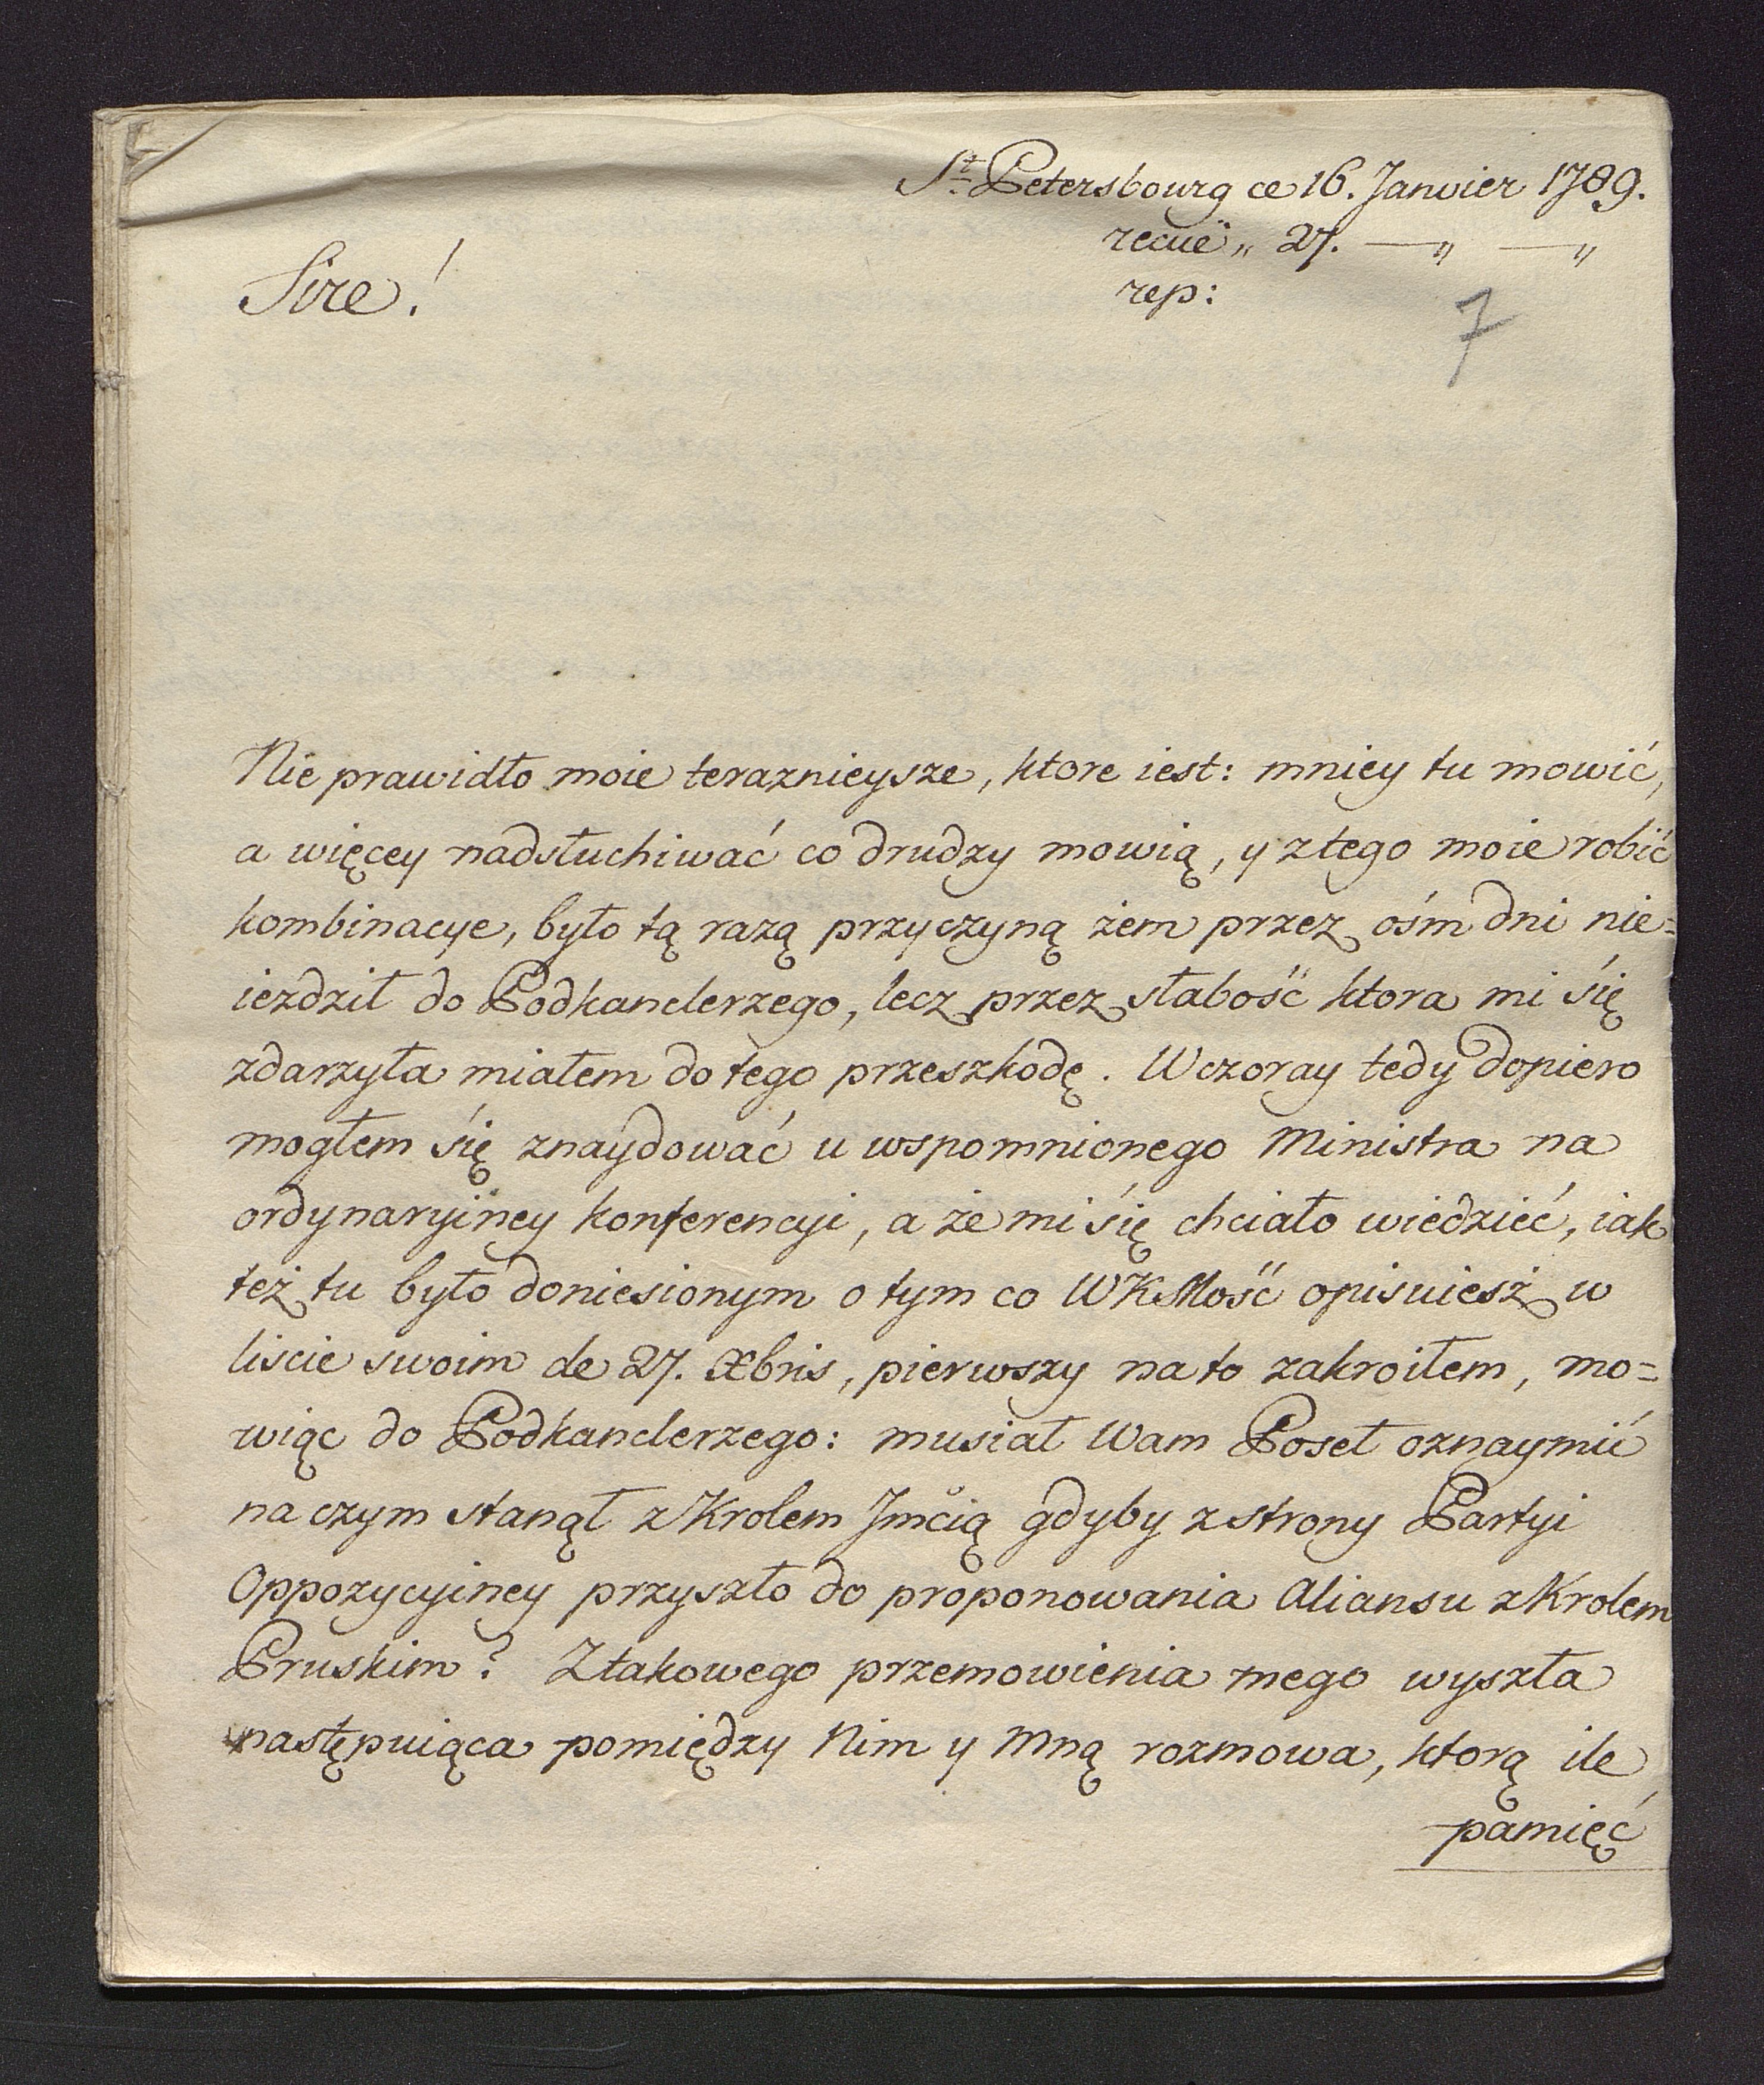 St Petersbourg ce 16. Janvier 1789.
recuë „ 27. —„ —„
rep:
7
Sire!
Nie prawidło moie teraznieysze, ktore iest: mniey tu mowić,
a więcey nadsłuchiwać co drudzy mowią, y z tego moie robić
kombinacye, było tą razą przyczyną żem przez ośm dni nie=
iezdził do Podkanclerzego, lecz przez słabość ktora mi się
zdarzyła miałem do tego przeszkodę. Wczoray tedy dopiero
mogłem się znaydować u wspomnionego Ministra na
ordynaryiney konferencyi, a że mi się chciało wiedzieć, iak
też tu było doniesionym o tym co WKMość opisuiesz w
liscie swoim de 27. Xbris, pierwszy na to zakroiłem, mo=
wiąc do Podkanclerzego: musiał Wam Poseł oznaymić
na czym stanął z Krolem Jmcią gdyby z strony Partyi
Oppozycyiney przyszło do proponowania Aliansu z Krolem
Pruskim? Z takowego przemowienia mego wyszła
następuiąca pomiędzy Nim y Mną rozmowa, ktorą ile
pamięć